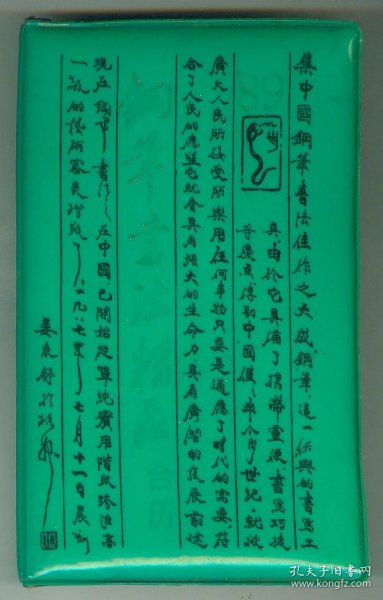 集中國鋼筆書法佳作之大成鋼筆,這一新興的書寫工
具,由於它具備了攜帶靈便,書寫巧捷
等優點,傳到中國僅半个多世紀,就被
廣大人民所接受所樂用,任何事物只要是適應了時代的需要,符
合了人民的願望,它就會具有强大的生命力,具有廣闊的發展前途
現在鋼筆書法,在中國已開始從單純實用階段跨進高
一級的藝術審美階段了。一九八七年七月十一日晨
姜東舒於杭州
89
鋼筆書法精品
台历
孔夫子旧书网